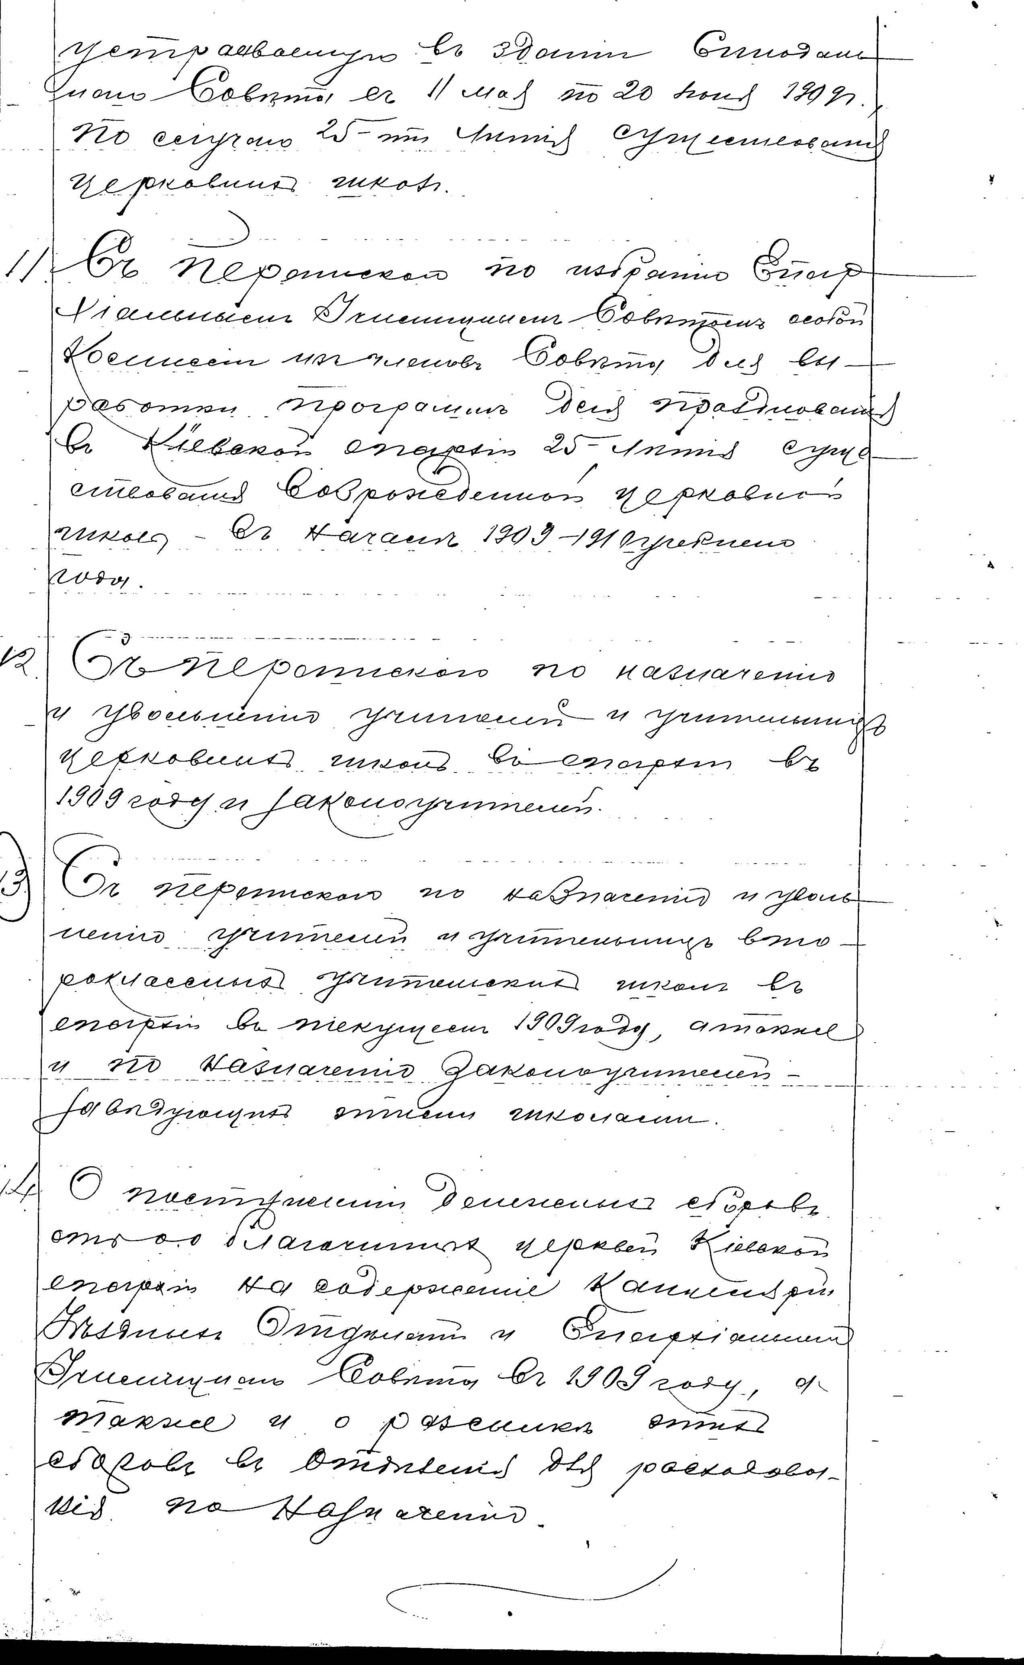 устраиваемую въ зданіи Синодаль
наго Совѣта съ 11 мая по 20 Іюня 1909 г.
по случаю 25-ти лѣтія существованія
церковныхъ школъ.
11 Съ перепискою по избранію Епар
хіальнымъ Училищнымъ Совѣтомъ особой
Комиссіи изъ членовъ Совѣта для вы-
работки программы для празднованія
въ Кіевской епархіи 25-лѣтія суще
ствованія возрожденной церковной
школы - въ началѣ 1909-1910 учебнаго
года.
12 Съ перепискою по назначенію
и увольненію учителей и учительницъ
церковныхъ школъ въ епархіи въ
1909 году и законоучителей.
13) Съ перепискою по назначенію и уволь
ненію учителей и учительницъ вто-
роклассныхъ учительскихъ школъ въ
епархіи въ текущемъ 1909 году, а также
и по назначенію Законоучителей -
завѣдующихъ этими школами.
14 О поступленіи денежныхъ сборовъ
отъ о.о. благочинныхъ церквей Кіевской
епархіи на содержаніе Канцеляріи
Уѣздныхъ Отдѣленій и Епархіальнаго
Училищнаго Совѣта въ 1909 году, а
также и о разсылкѣ этихъ
сборовъ въ Отдѣленія для расходова-
нія по назначенію.